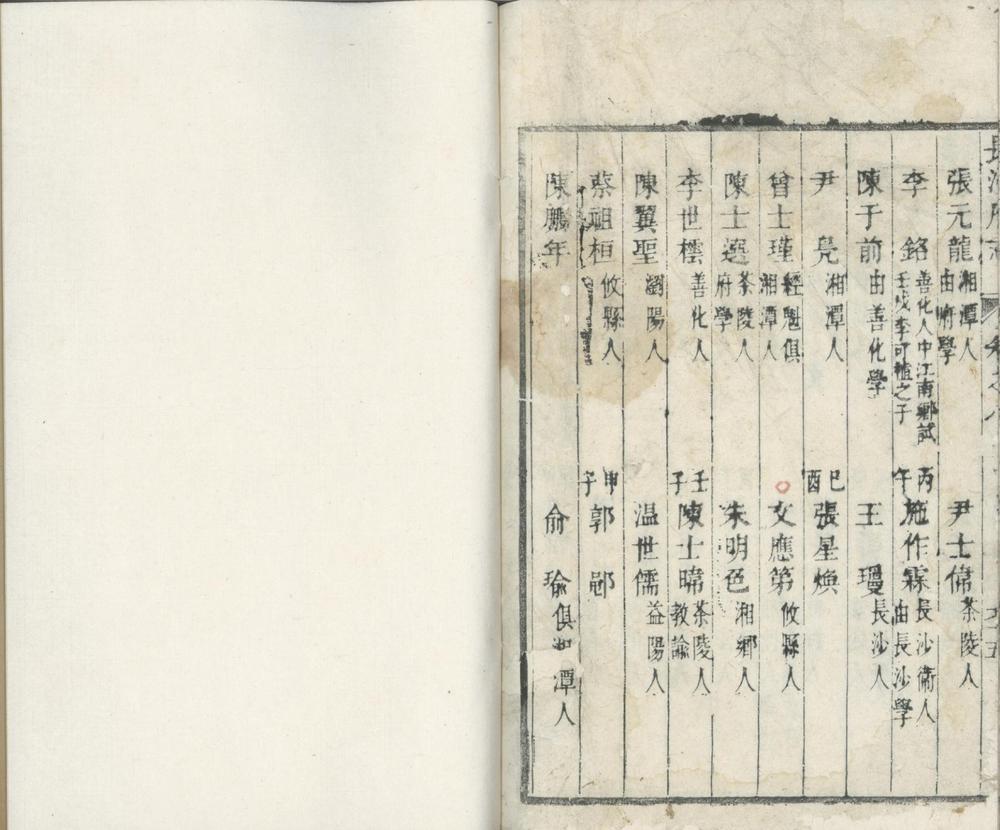 長沙府志 卷之八
張元龍 湘潭人由府學
尹士偉 茶陵人
李 銘 善化人中江南鄉試壬戌李可植之子
丙午 施作霖 長沙衛人由長沙學
陳于前 由善化學
王 㻴 長沙人
尹 堯 湘潭人
己酉 張星煥
曾士瑾 經魁俱湘潭人
文應第 攸縣人
陳士選 茶陵人府學
朱明色 湘鄉人
李世樰 善化人
壬子 陳士暐 茶陵人教諭
陳翼聖 瀏陽人
温世儒 益陽人
蔡祖桓 攸縣人
甲子 郭 郧
陳鵬年
俞 瑜 俱湘潭人